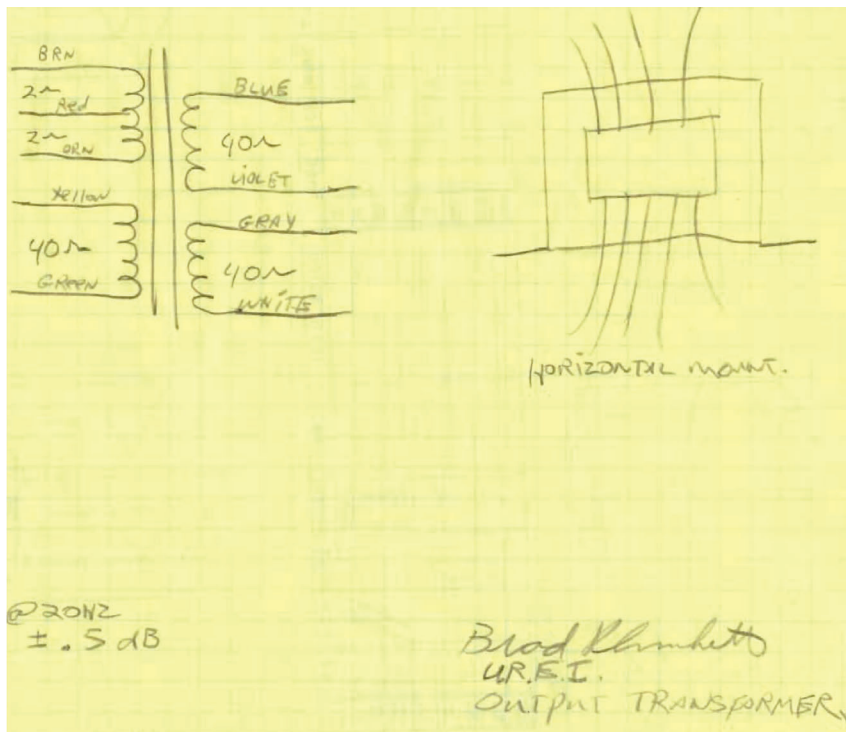 BRN
2~
Red
2~
ORN
Yellow
40~
GREEN
BLUE
40~
VIOLET
GRAY
40~
WHITE
HORIZONTAL MOUNT.
@20HZ
± .5 dB
Brad Plunkett
U.R.E.I.
OUTPUT TRANSFORMER